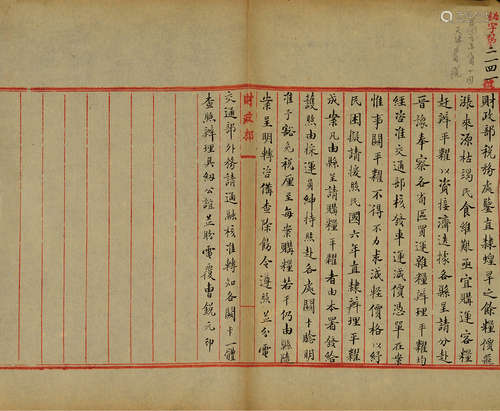 財政部稅務處鑒直隸蝗旱之餘糧價飛
漲來源枯竭民食維艱亟宜購運客糧
趕辦平糶以資接濟迭據各縣呈請分赴
晉豫奉察各省區買運雜糧辦理平糶均
經咨准交通部核發車運減價憑單在案
惟事關平糶不得不力求減輕價格以紓
民困擬請援照民國六年直隸辦理平糶
成案凡由縣呈請購糧平糶者由本署發給
護照由採運員紳持照赴各處關卡驗明
准予豁免稅厘至每案購糧若干仍由縣隨
案呈明轉咨備查除飭令遵照並分電
財政部
交通部外務請通融核准轉知各關卡一體
查照辦理具紉公誼並盼電覆曹銳元印